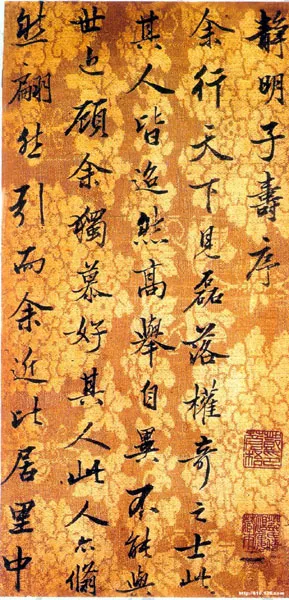 静明子壽序
余行天下見磊落權奇之士此
其人皆迯然髙舉自異不能與
世近顾余獨慕好其人此人亦翛
然翩然引而余近比居里中